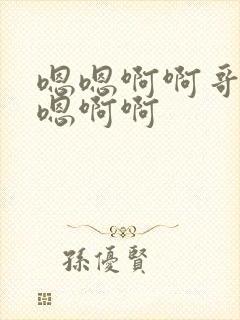 嗯嗯啊啊哥
嗯啊啊
孫優賢